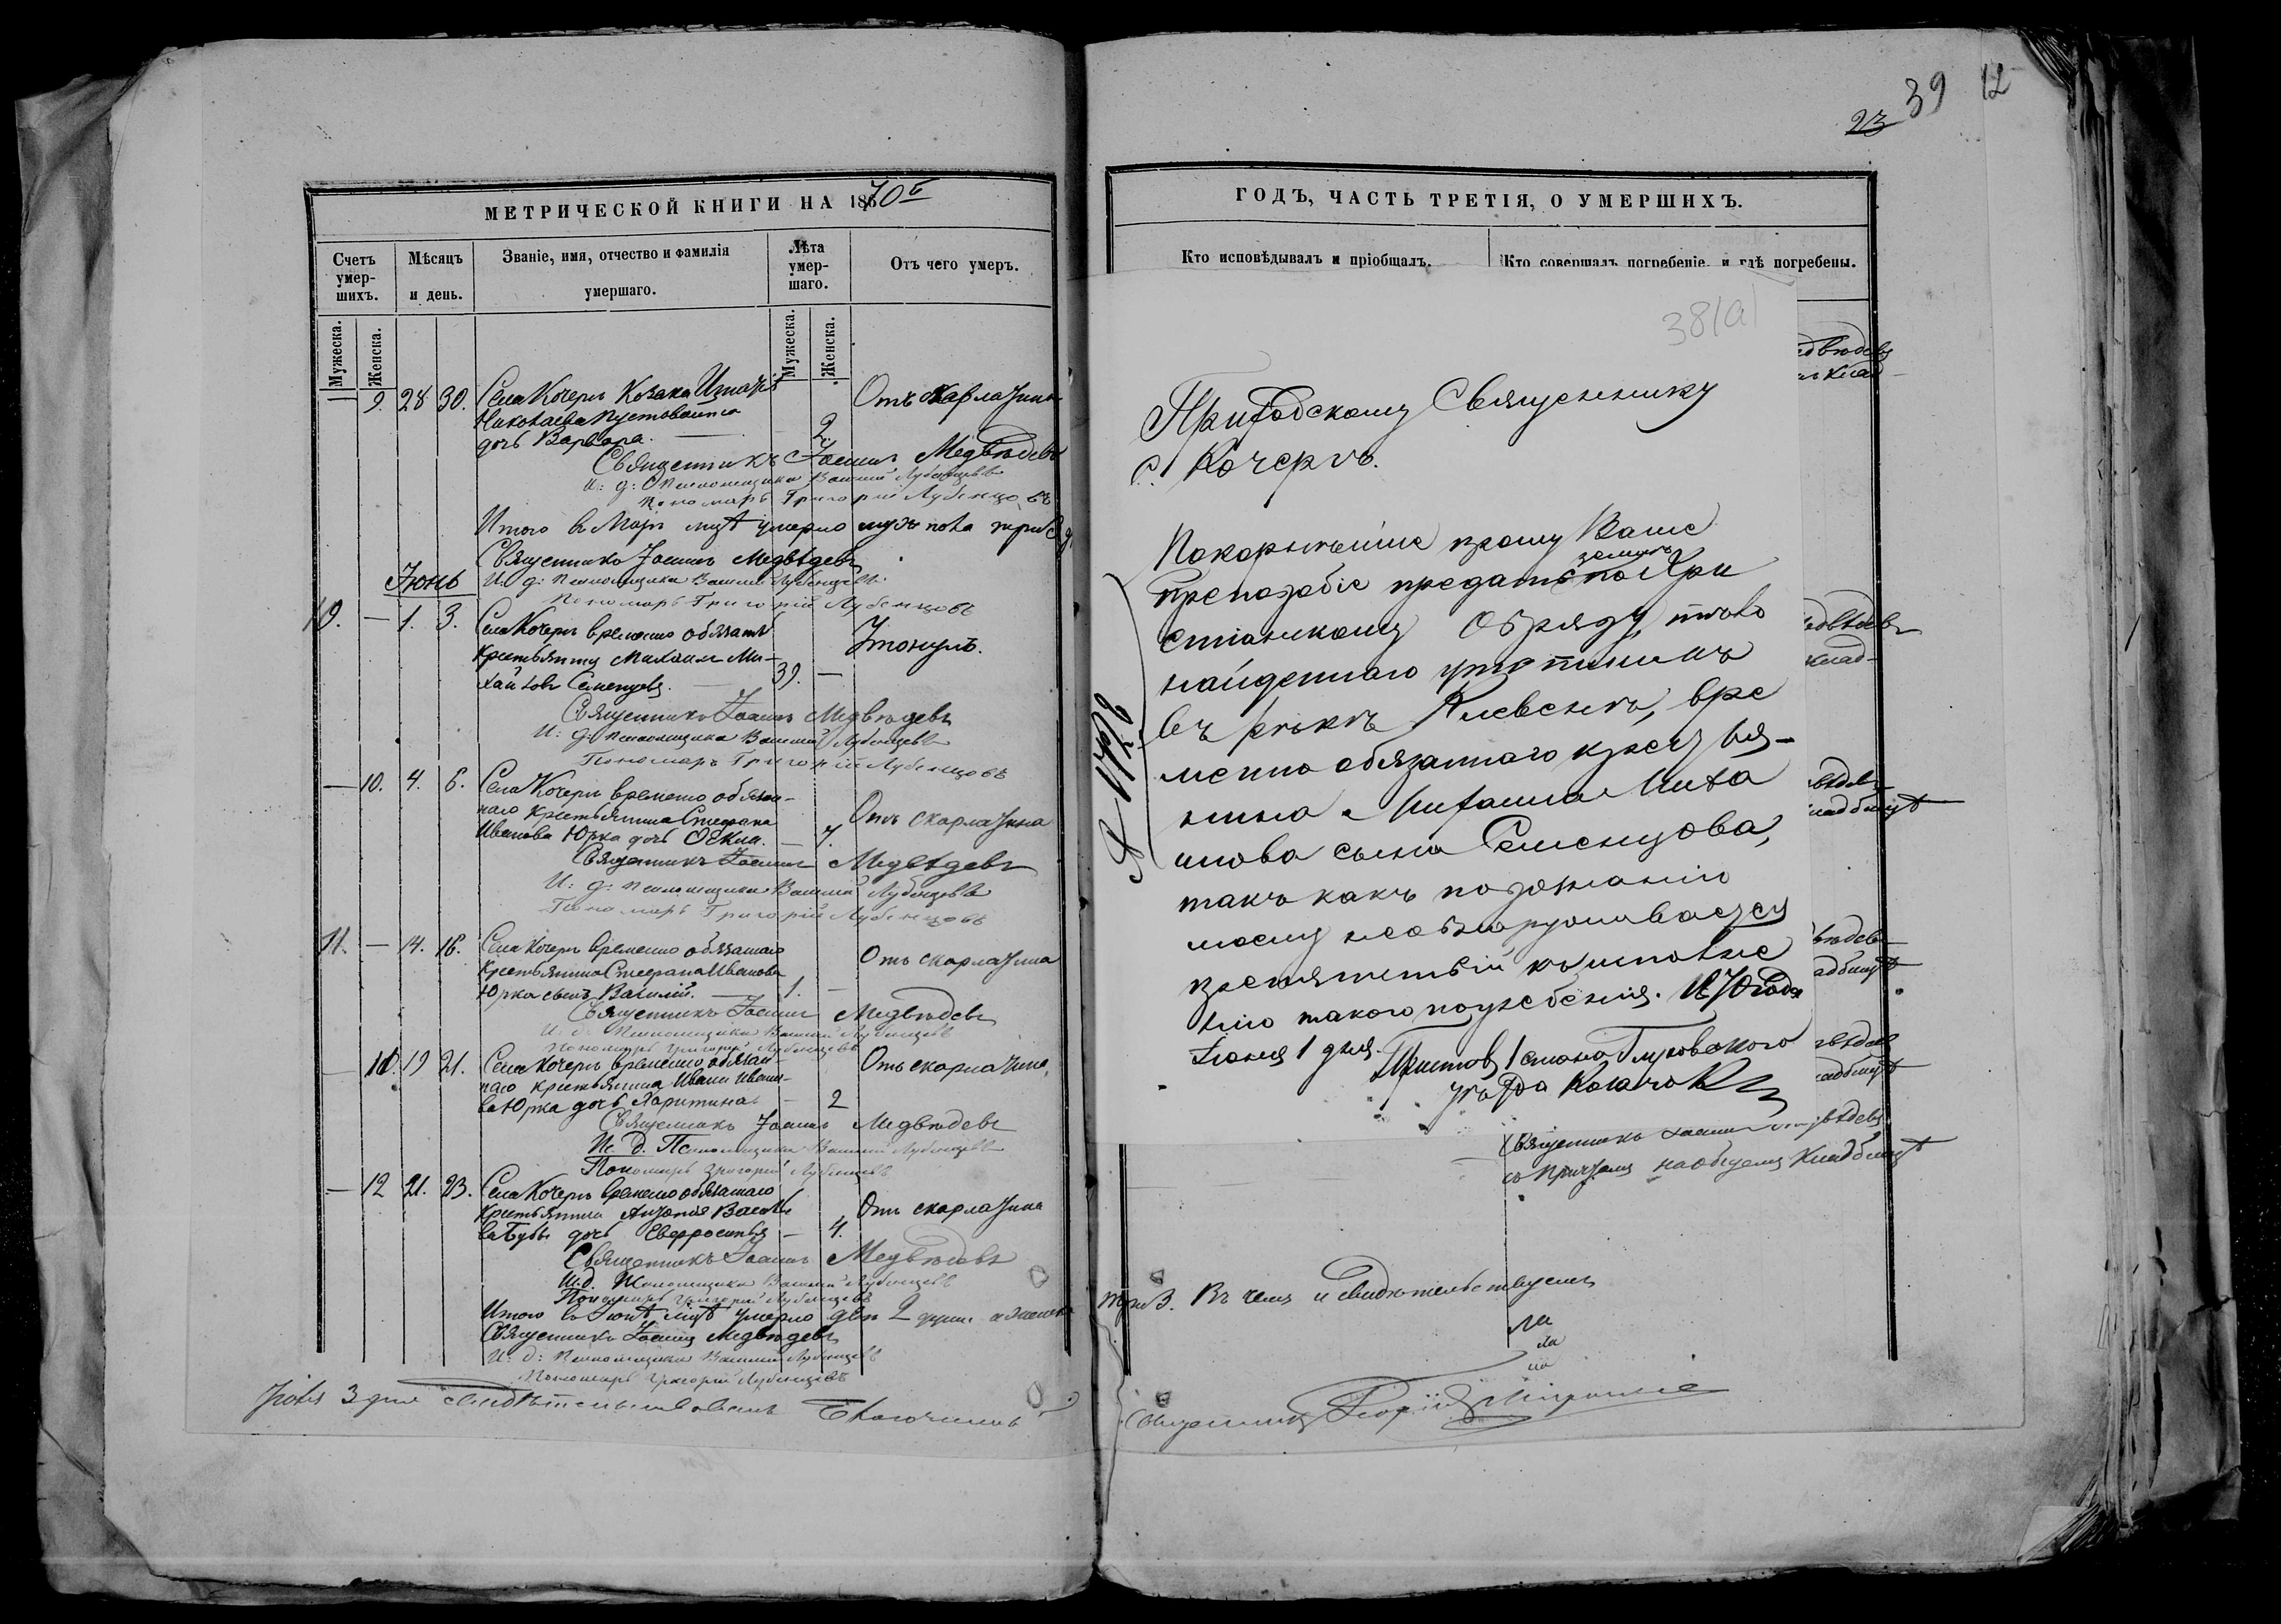 МЕТРИЧЕСКОЙ КНИГИ НА 1870 г
Счетъ умер-шихъ.
Мѣсяцъ и день.
Званіе, имя, отчество и фамилія умершаго.
Лѣта умер-шаго.
Отъ чего умеръ.
Мужеска.
Женска.
Мужеска.
Женска.
9. 28 30. Села Кочергъ Козака Игнатія
Николаева Пустовойта
дочь Варвара. 2 Отъ скарлатины
Священникъ Іоаннъ Медвѣдевъ
И: д: Псаломщика Василій Лубенцовъ
Пономарь Григорій Лубенцовъ
Итого въ Маѣ мцѣ умерло муж пола три 3
Священникъ Іоаннъ Медвѣдевъ
Іюнь
И: д: Псаломщика Василій Лубенцовъ
Пономарь Григорій Лубенцовъ
10. — 1. 3. Села Кочергъ временно обязан
Крестьянинъ Михаилъ Ми-
хайловъ Семенцовъ. 39. — Утонулъ.
Священникъ Іоаннъ Медвѣдевъ
И: д: Псаломщика Василій Лубенцовъ
Пономарь Григорій Лубенцовъ
— 10. 4. 6. Села Кочергъ временно обязан-
наго Крестьянина Стефана
Иванова Юрка дочь Ѳекла. — 7. Отъ скарлатины
Священникъ Іоаннъ Медвѣдевъ
И: д: Псаломщика Василій Лубенцовъ
Пономарь Григорій Лубенцовъ
11. — 14. 16. Села Кочергъ временно обязаннаго
Крестьянина Стефана Иванова
Юрка сынъ Василій. 1. — Отъ скарлатины
Священникъ Іоаннъ Медвѣдевъ
И: д: Псаломщика Василій Лубенцовъ
Пономарь Григорій Лубенцовъ
— 11. 19 21. Села Кочергъ временно обязан-
наго крестьянина Ивана Ивано-
ва Юрка дочь Харитина. — 2 Отъ скарлатины.
Священникъ Іоаннъ Медвѣдевъ
И. д. Псаломщика Василій Лубенцовъ
Пономарь Григорій Лубенцовъ
— 12 21. 23. Села Кочергъ временно обязаннаго
Крестьянина Антонія Василье
ва дочь Евфросинія — 4. Отъ скарлатины
Священникъ Іоаннъ Медвѣдевъ
И.д. Псаломщика Василій Лубенцовъ
Пономарь Григорій Лубенцовъ
Итого въ Іюнѣ мцѣ умерло двѣ 2 души а женска
Священникъ Іоаннъ Медвѣдевъ
И: д: Псаломщика Василій Лубенцовъ
Пономарь Григорій Лубенцовъ
Іюля 3 дня свидѣтельствовалъ Благочинный
23 39 12
ГОДЪ, ЧАСТЬ ТРЕТІЯ, О УМЕРШИХЪ.
Кто исповѣдывалъ и пріобщалъ.
Кто совершалъ погребеніе, и гдѣ погребены.
38/а/
Приходскому Священнику
с. Кочергъ.
Покорнѣйше прошу Ваше
Преподобіе предать землѣ по Хри
стіанскому обряду, тѣло
найденнаго утопшимъ
въ рѣкѣ Клевенѣ, вре
менно обязаннаго кресть я-
нина Михаила Миха
илова сына Семенцова,
такъ какъ по дознанію
моему необнаруживается
препятствій къ исполне
нію такого погребенія. 1870 года
Іюня 1 дня.
Приставъ 1 стана Глуховского
уѣзда
№ 1178
Священникъ Іоаннъ Медвѣдевъ
съ причтомъ на общемъ Кладбищѣ
три 3. Въ чемъ и свидѣтельствуемъ
Священникъ